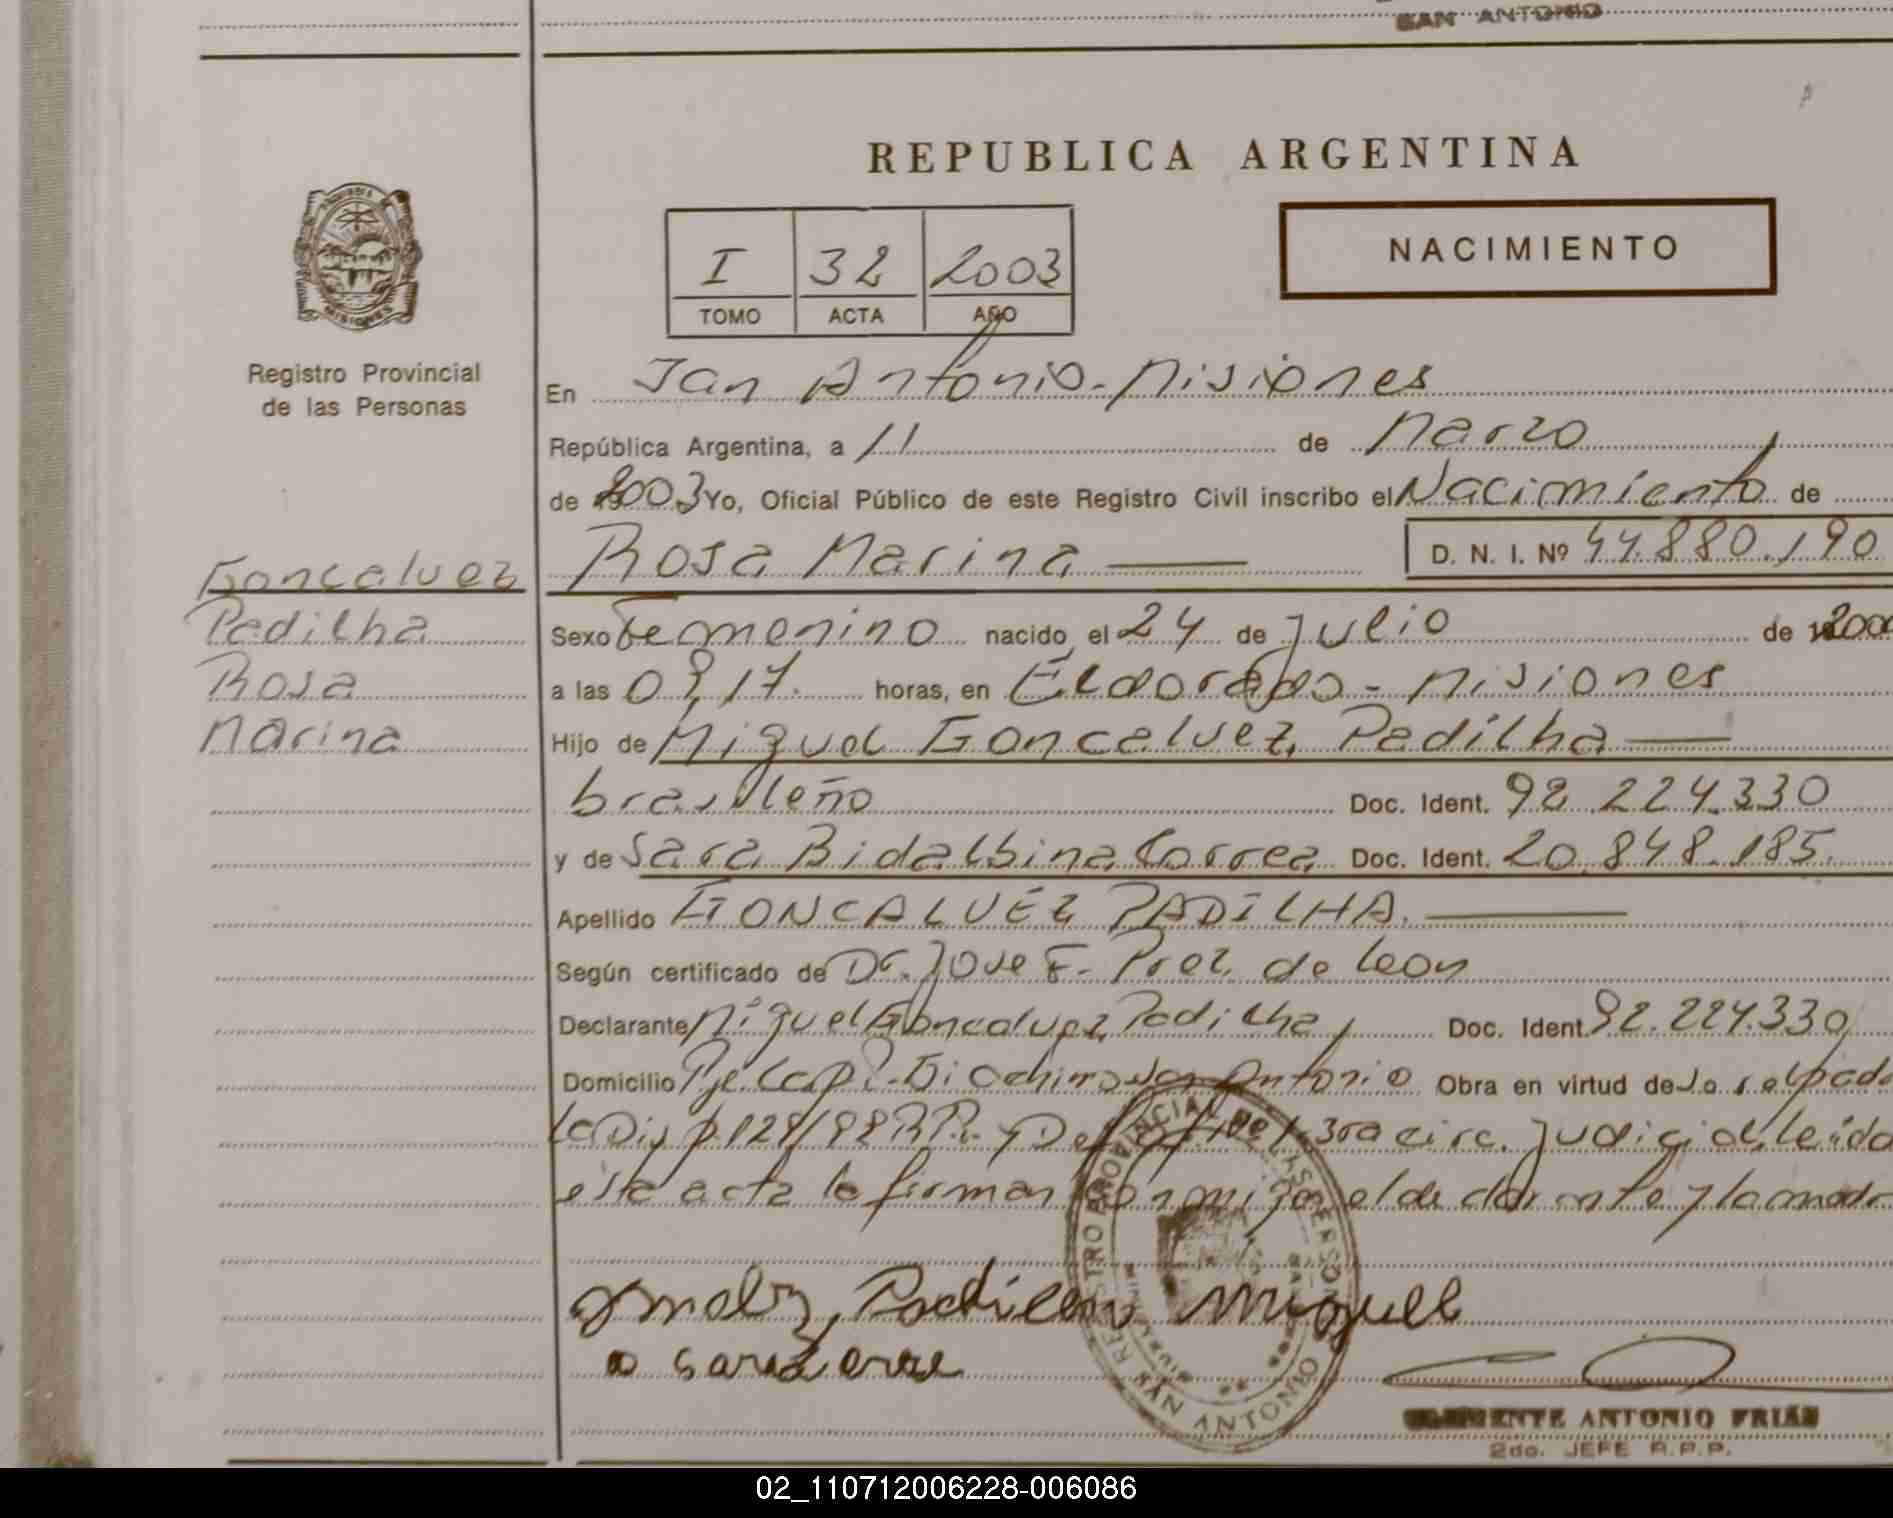 SAN ANTONIO
REPUBLICA ARGENTINA
NACIMIENTO
I 32 2003
TOMO ACTA AÑO
Registro Provincial
de las Personas
En San Antonio - Misiones
República Argentina, a 11 de Marzo
de 2003 Yo, Oficial Público de este Registro Civil inscribo el Nacimiento de
Rosa Marina D. N. I. Nº 44.880.190
Goncalvez
Padilha
Rosa
Marina
Sexo Femenino nacido el 24 de Julio de 2000
a las 09,17. horas, en Eldorado - Misiones
Hijo de Miguel Goncalvez Padilha
brasileño Doc. Ident. 92.224.330
y de Sara Bidalbina Correa Doc. Ident. 20.848.185.
Apellido GONCALVEZ PADILHA.
Según certificado de Dr. Jose F. de Leon
Declarante Miguel Goncalvez Padilha, Doc. Ident. 92.224.330
Domicilio San Antonio Obra en virtud de
3ra circ. Judicial, leida
este acta la firman conmigo el declarante y la madre
Padilha Miguel
REGISTRO PROVINCIAL DE LAS PERSONAS
SAN ANTONIO
ANTONIO FRIAS
2do. JEFE R.P.P.
02_110712006228-006086